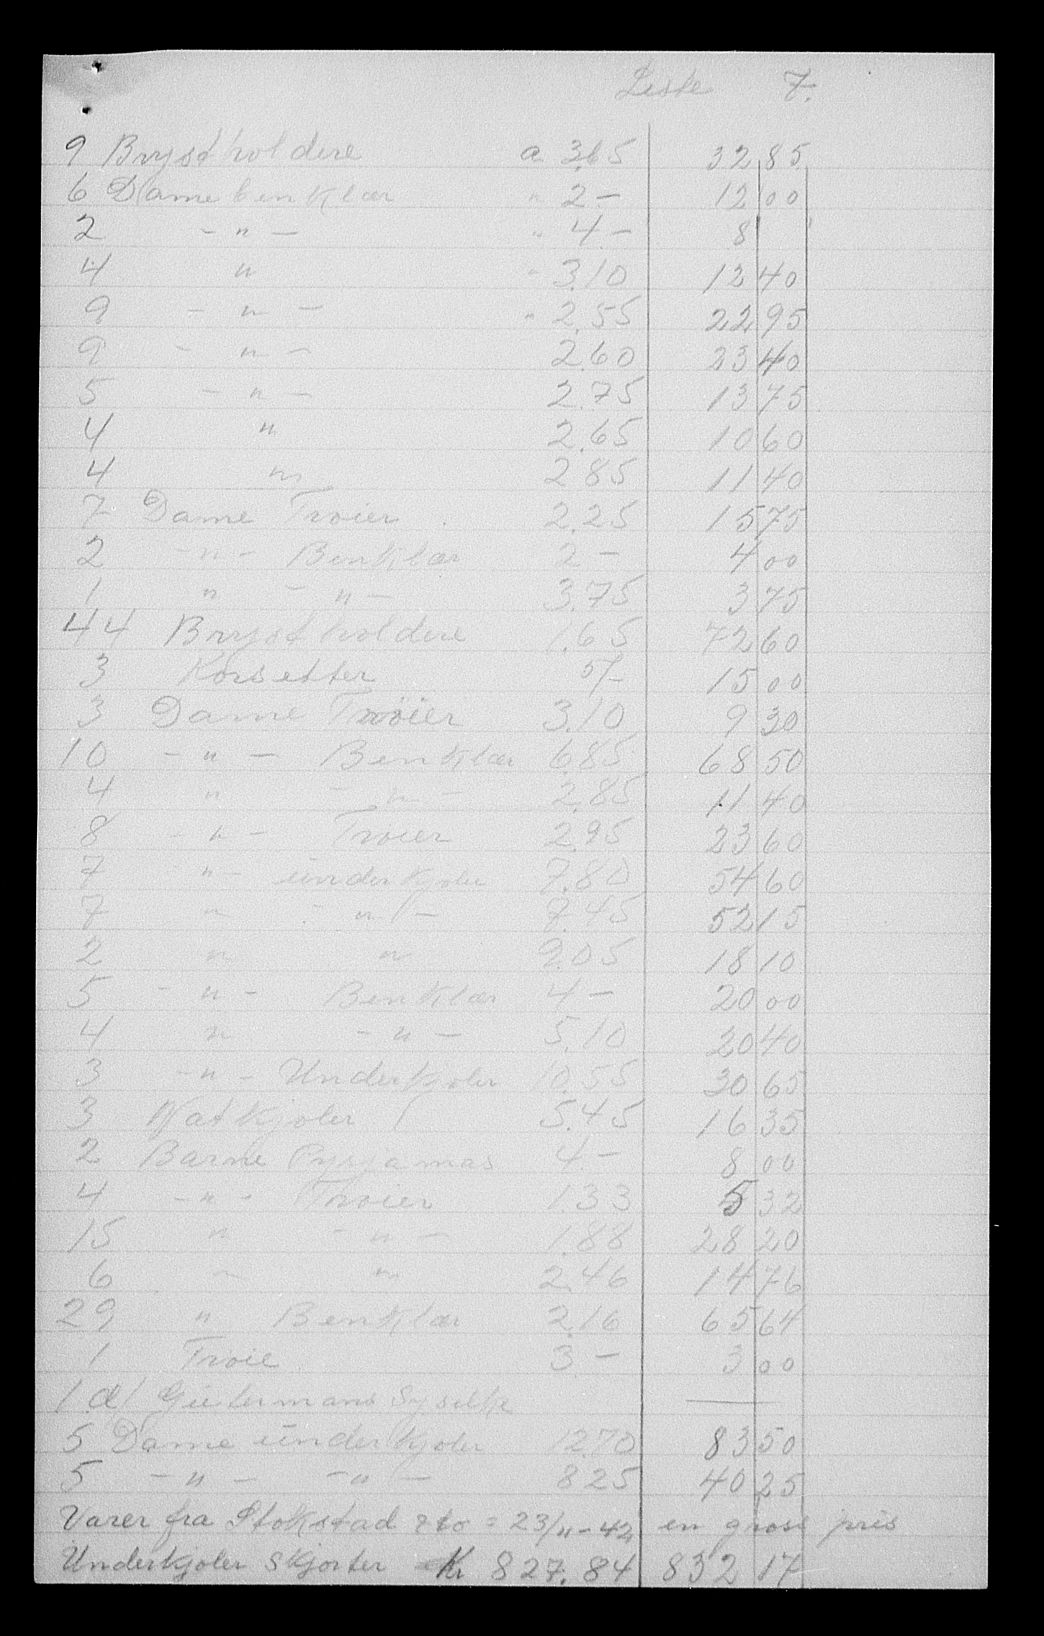 Liste 7.
9 Brystholdere a 3.65 32 85
6 Damebenklær " 2 - 12 00
2 - " - " 4 - 8
4 " " 3.10 12 40
9 - " - " 2.55 22 95
9 - " - 2.60 23 40
5 - " - 2.75 13 75
4 " 2.65 10 60
4 " 2.85 11 40
7 Dame Troier 2.25 15 75
2 - " - Benklær 2 - 4 00
1 " - " - 3.75 3 75
44 Brystholdere 1.65 72 60
3 Korsetter 5/- 15 00
3 Dame Troier 3.10 9 30
10 - " - Benklær 6.85 68 50
4 " - " - 2.85 11 40
8 - " - Troier 2.95 23 60
7 " - underkjoler 7.80 54 60
7 " - " - 7.45 52 15
2 " " 9.05 18 10
5 - " - Benklær 4 - 20 00
4 " - " - 5.10 20 40
3 - " - Underkjoler 10.55 30 65
3 Natkjoler 5.45 16 35
2 Barne Pysjamas 4 - 8 00
4 - " - Troier 1.33 5 32
15 " - " - 1.88 28 20
6 " " 2.46 14 76
29 " Benklær 2.16 65 64
1 Troie 3 - 3 00
1 Gütermans Sysilke
5 Dame underkjoler 12.70 83 50
5 - " - - " - 8.25 40 25
Varer fra Stokstad = 23/11-42 en gross pris
Underkjoler Skjorter Kr 827.84 832 17